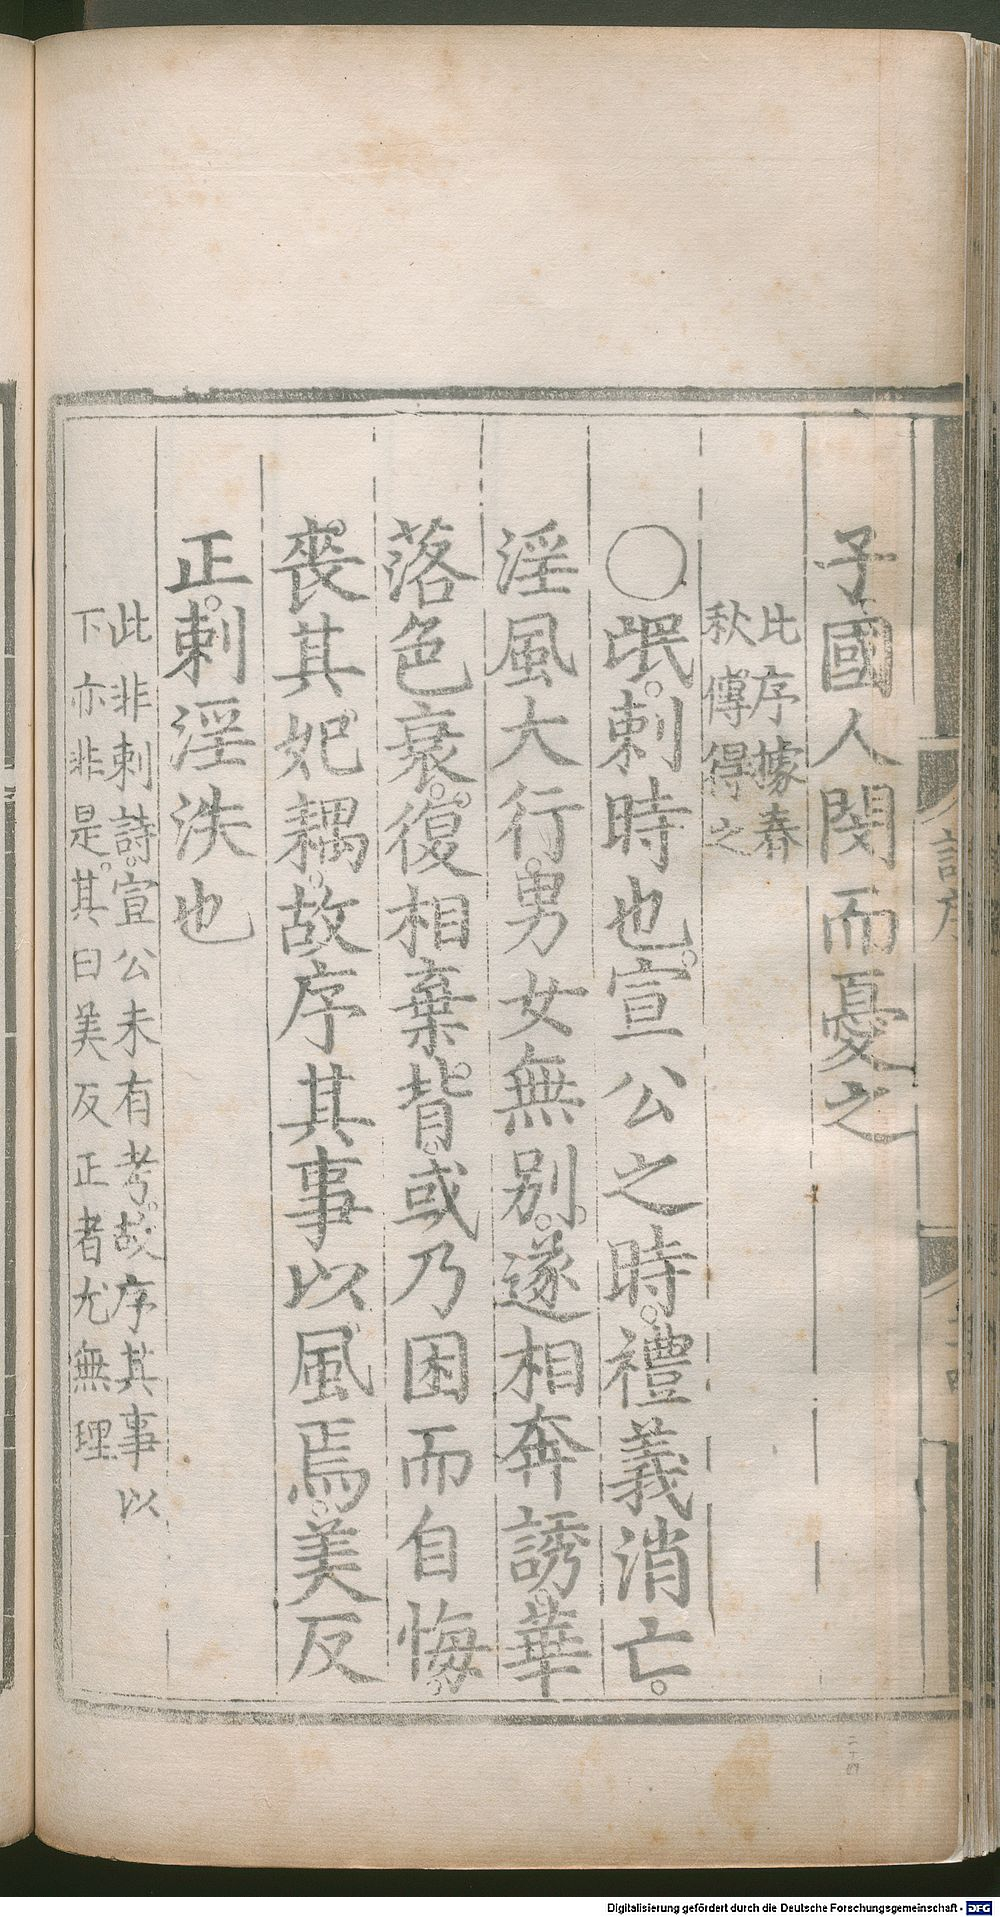 子國人閔而憂之
此序據春
秋傳得之
○氓。刺時也。宣公之時。禮義消亡。
淫風大行。男女無別。遂相奔誘。華
落色衰。復相棄背。或乃困而自悔。
喪其妃耦。故序其事以風焉。美反
正。刺淫泆也
此非刺詩。宣公未有考。故序其事以
下亦非是。其曰美反正者尤無理
詩序
二十四
Digitalisierung gefördert durch die Deutsche Forschungsgemeinschaft - DFG